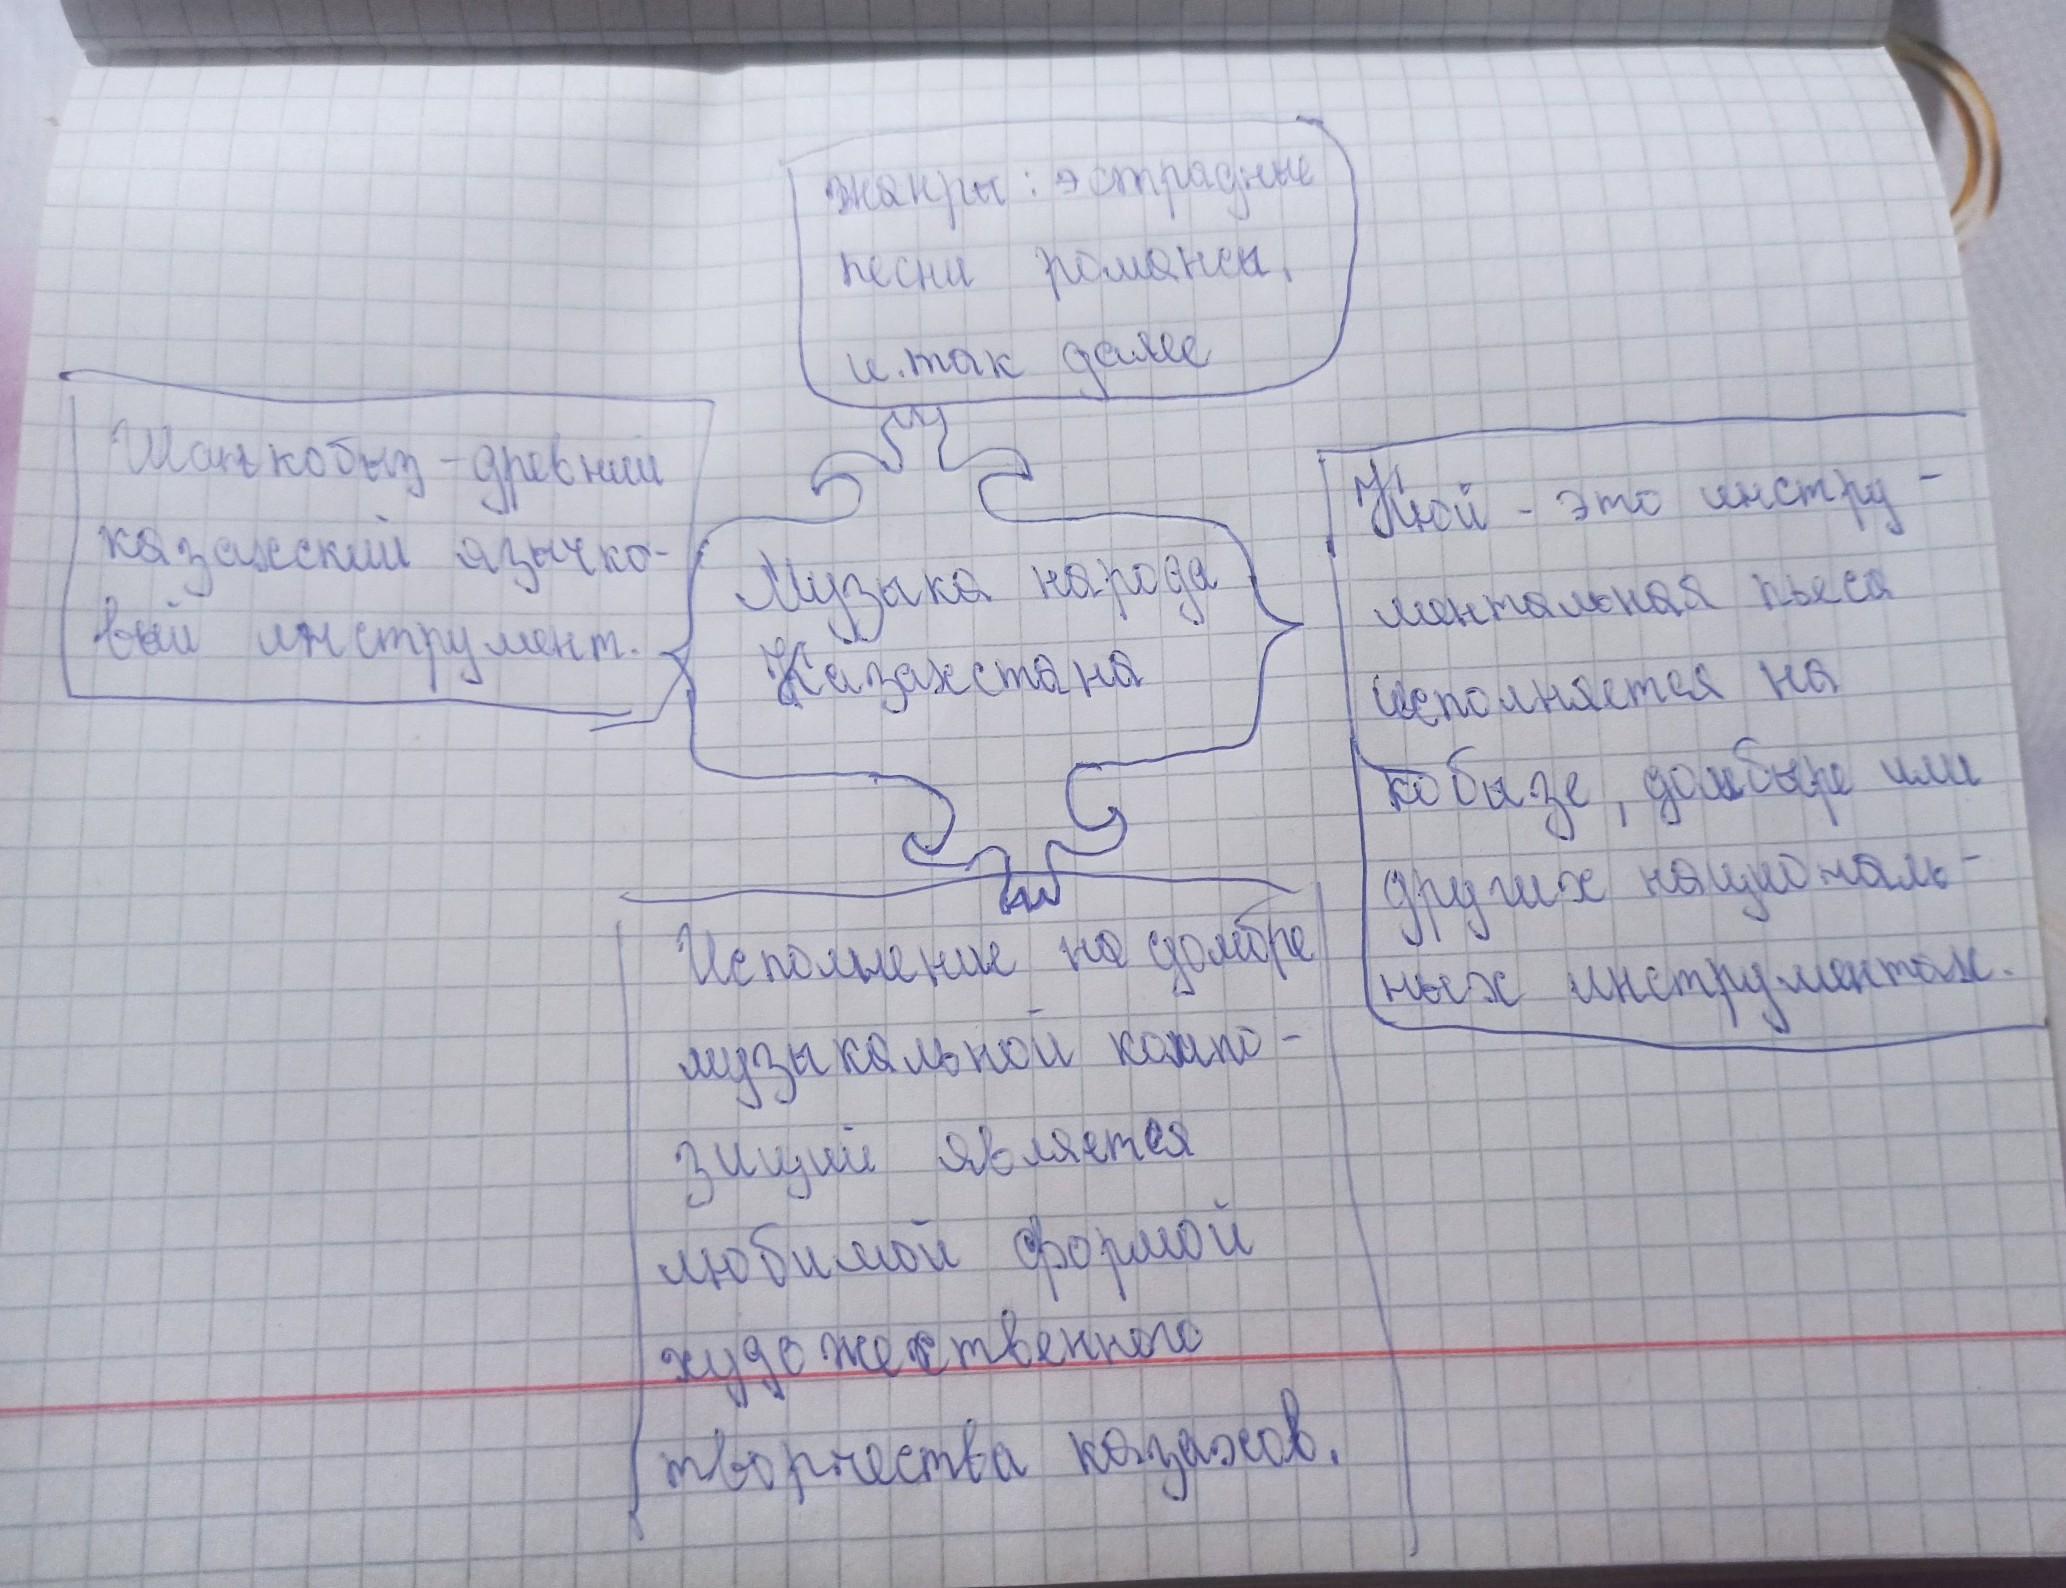 жанры: эстрадные
песни романсы,
и.так далее
Шанькобыз - древний
казахский язычко-
вый инструмент.
Музыка народа
Казахстана
Кюй - это инстру-
ментальная пьеса
исполняется на
кобызе, домбыре или
других националь-
ных инструментах.
Исполнение на домбре
музыкальной компо-
зиций является
любимой формой
художественного
творчества казахов.